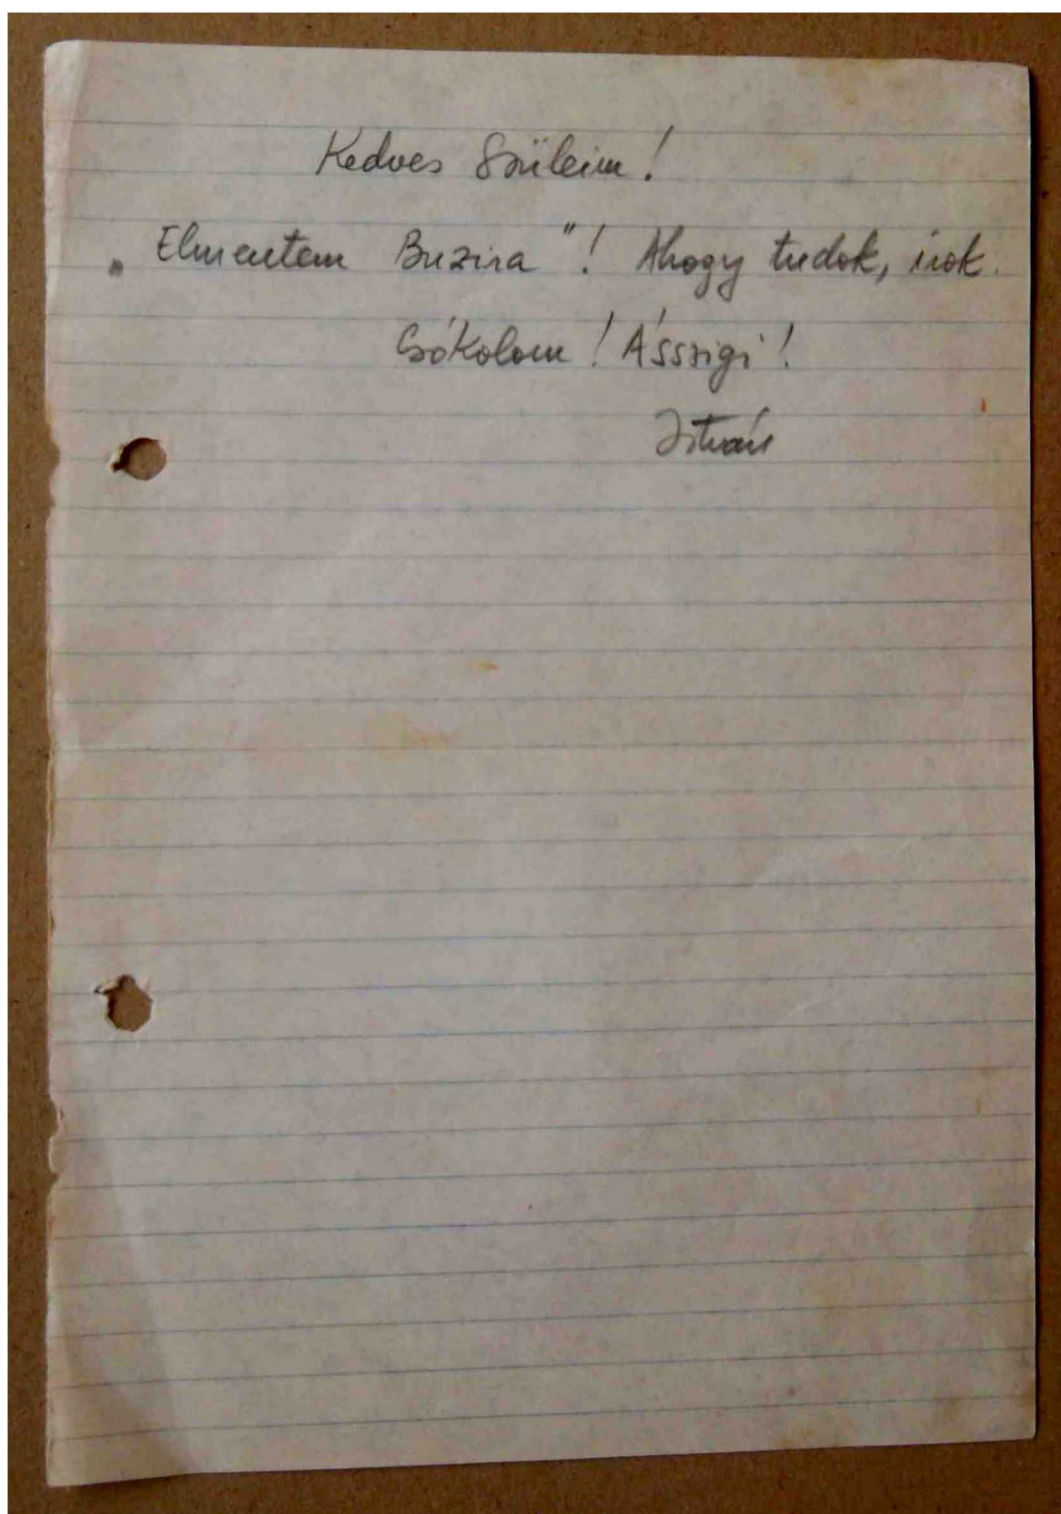 Kedves Szüleim!
„Elmentem Buzira"! Ahogy tudok, irok.
Csókolom! Ásszigi!
István